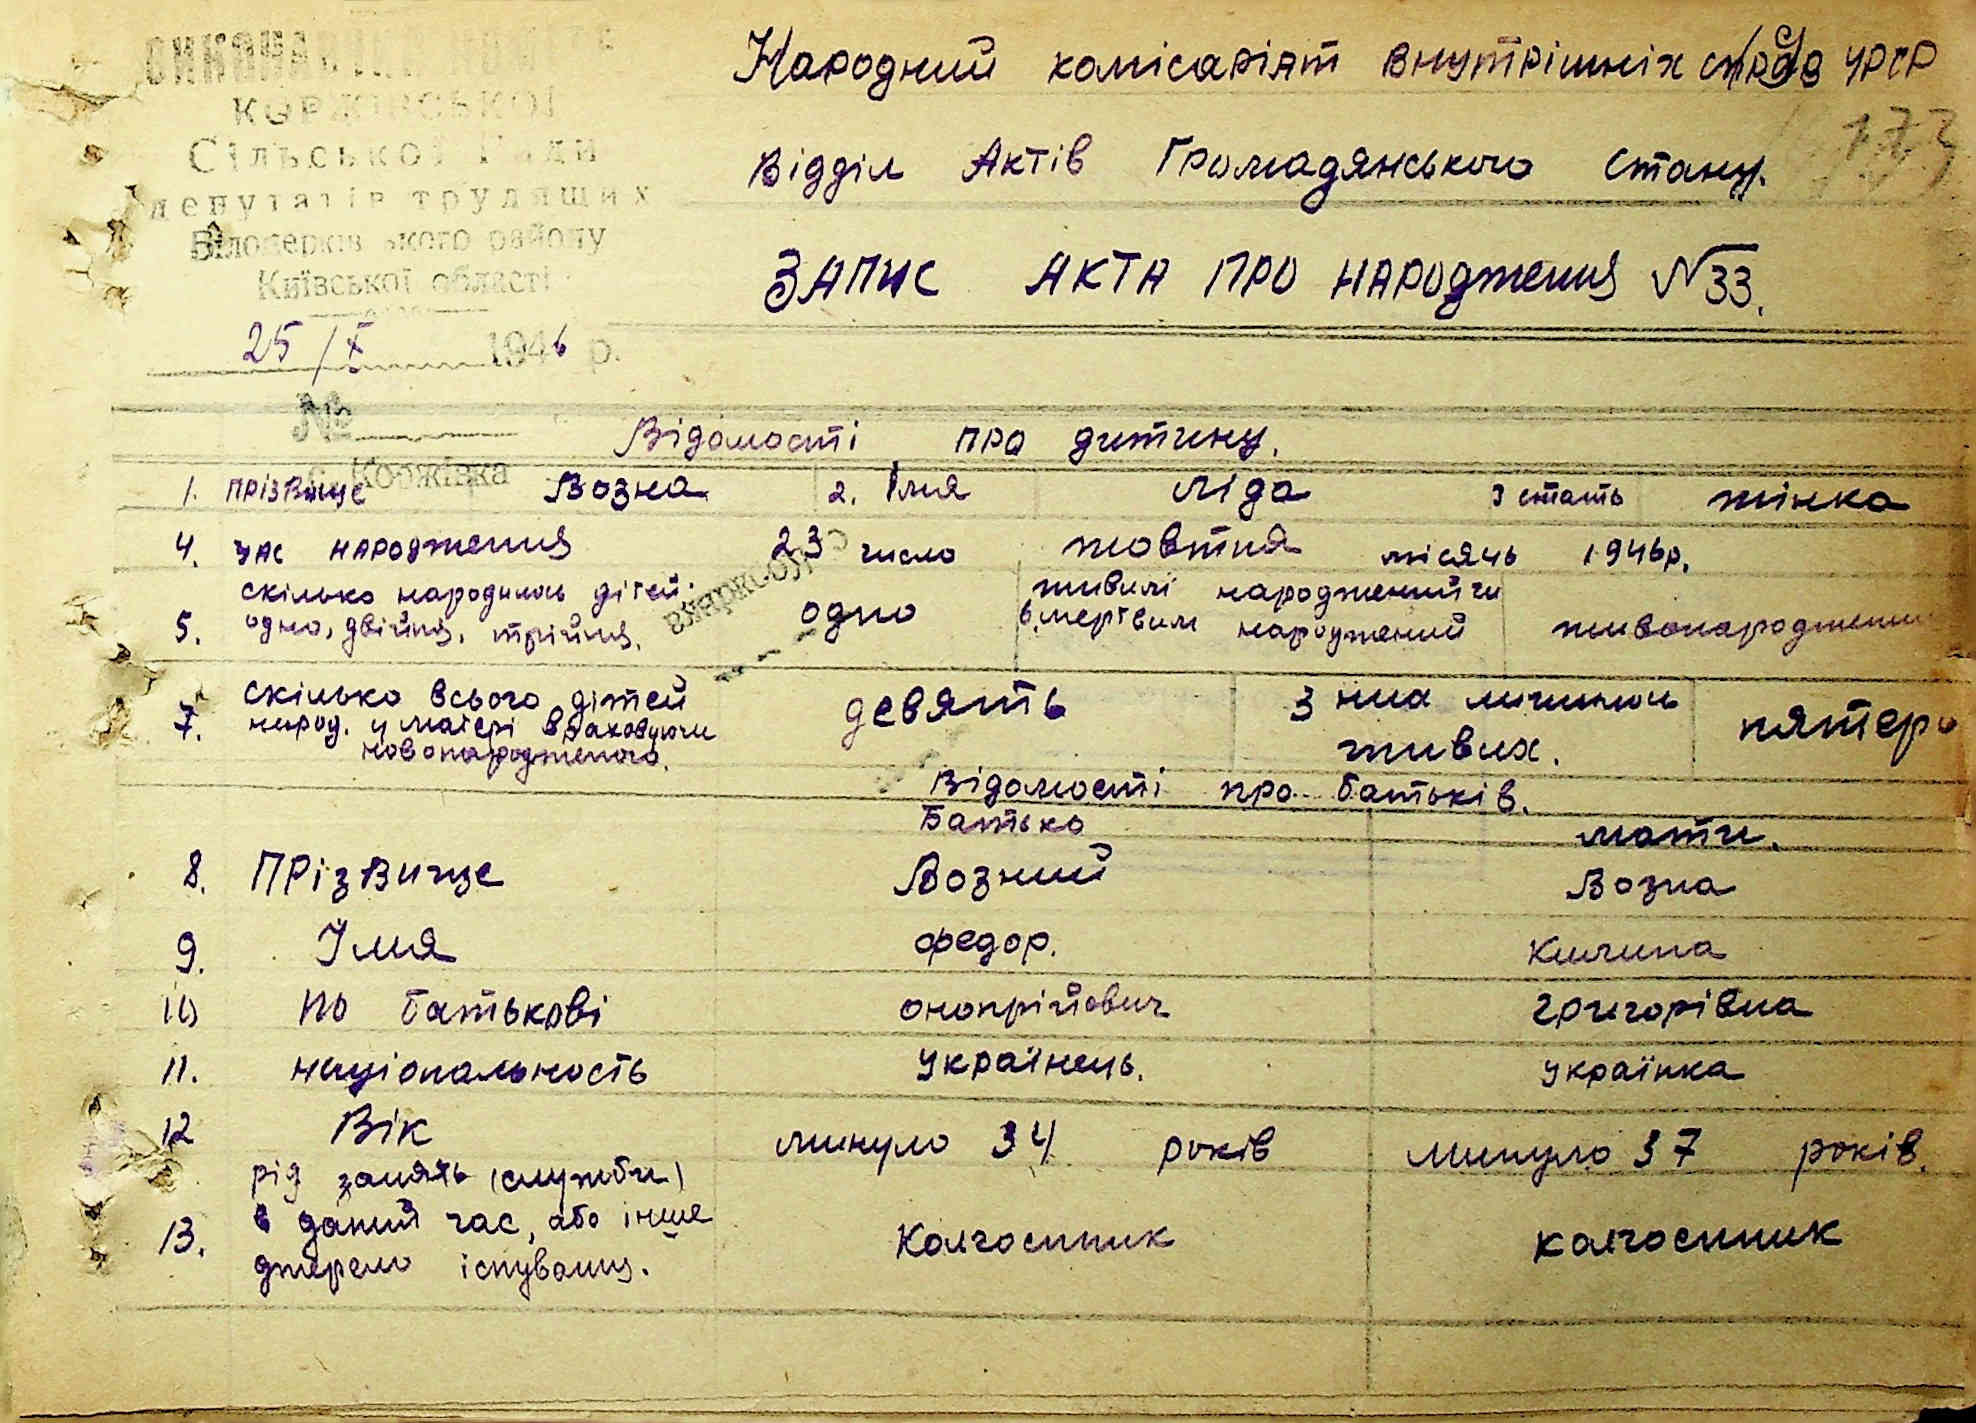 Народний комісаріят внутрішніх справ УРСР
173
Відділ Актів Громадянського стану.
ЗАПИС АКТА ПРО НАРОДження №33.
КОРЖІВСЬКОЇ
Сільської Ради
депутатів трудящих
Білоцерківського району
Київської області
25/X 1946 р.
№
с. Коржівка
Відомості про дитину.
1. прізвище Возна 2. Імя Ліда 3 стать жінка
4. час народження 23 число жовтня місяць 1946р.
5. скілько народилось дітей одно, двійня, трійня. одно 6. живим народжений чи мертвим народжений живонароджении
7. скілько всього дітей народ. у матері враховуючи новонародженого. девять З них личилось живих. пятеро
Відомості про батьків.
Батько мати.
8. Прізвище Возний Возна
9. Імя федор. Килина
10 по батькові онопрійович григорівна
11. національность українець. українка
12 Вік минуло 34 років минуло 37 років.
13. рід занять (служби) в даний час, або інше джерело існування. Колгоспник колгоспник